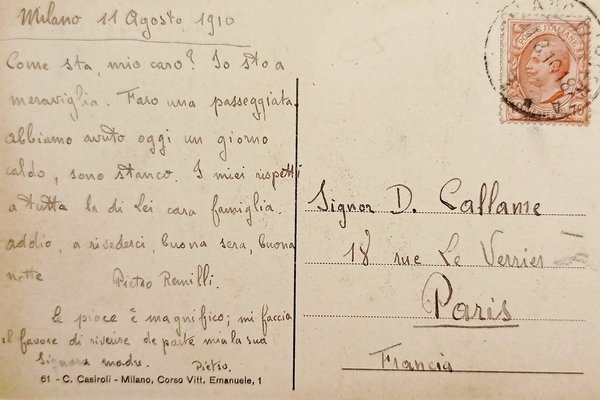 Milano 11 Agosto 1910
Come sta, mio caro? Io sto a
meraviglia. Faro una passeggiata
abbiamo avuto oggi un giorno
caldo, sono stanco. I miei rispetti
a tutta la di Lei cara famiglia.
addio, a rivederci, buona sera, buona
notte
Pietro Remilli.
Le piace è magnifico; mi faccia
il favore di riverire de parte mia la sua
Signora madre. Pietro.
61 - C. Casiroli - Milano, Corso Vitt. Emanuele, 1
POSTE ITALIANE
Signor D. Callame
18 rue Le Verrier
Paris
Francia